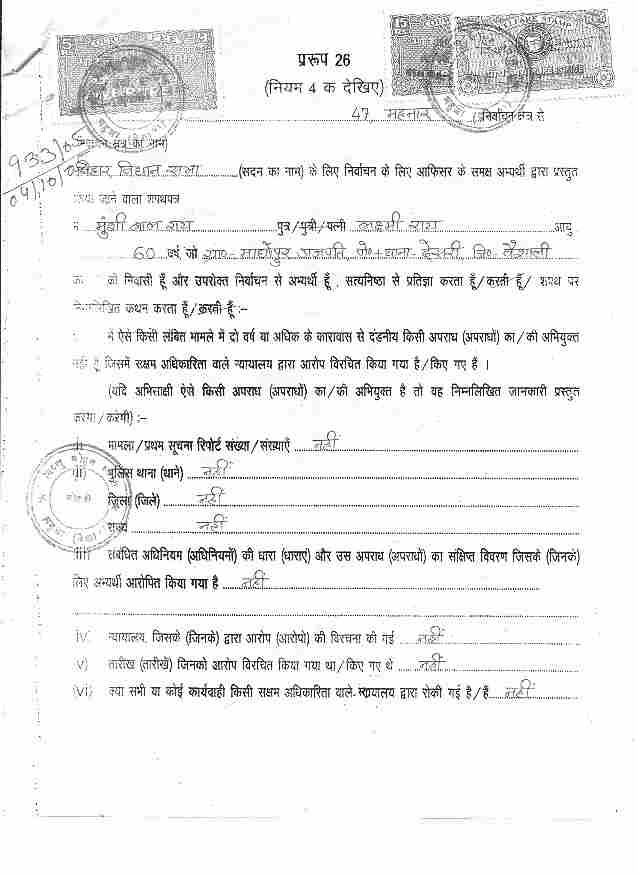 प्ररूप 26
(नियम 4 क देखिए)
47, महनार (निर्वाचन क्षेत्र से
933/05
04/10/05
क्षेत्र का नाम)
बिहार विधान सभा (सदन का नाम) के लिए निर्वाचन के लिए आफिसर के समक्ष अभ्यर्थी द्वारा प्रस्तुत
किया जाने वाला शपथपत्र
मुंशी लाल राय पुत्र/पुत्री/पत्नी लक्ष्मी राय आयु
60 वर्ष, जो ग्रा०- माधोपुर गजपति, पो०+थाना- देसरी, जि० वैशाली
का निवासी हूँ और उपरोक्त निर्वाचन से अभ्यर्थी हूँ, सत्यनिष्ठा से प्रतिज्ञा करता हूँ/करती हूँ/ शपथ पर
निम्नलिखित कथन करता हूँ/करती हूँ:-
में ऐसे किसी लंबित मामले में दो वर्ष या अधिक के कारावास से दंडनीय किसी अपराध (अपराधों) का/की अभियुक्त
नहीं हूँ जिसमें सक्षम अधिकारिता वाले न्यायालय द्वारा आरोप विरचित किया गया है/किए गए हैं ।
(यदि अभिसाक्षी ऐसे किसी अपराध (अपराधों) का/की अभियुक्त है तो वह निम्नलिखित जानकारी प्रस्तुत
करेगा/करेगी) :-
मामला/प्रथम सूचना रिपोर्ट संख्या/संख्याएँ नहीं
ii) पुलिस थाना (थाने) नहीं
जिला (जिले) नहीं
राज्य नहीं
iii) संबंधित अधिनियम (अधिनियमों) की धारा (धाराएं) और उस अपराध (अपराधों) का संक्षिप्त विवरण जिसके (जिनके)
लिए अभ्यर्थी आरोपित किया गया है नहीं
iv) न्यायालय, जिसके (जिनके) द्वारा आरोप (आरोपों) की विरचना की गई नहीं
v) तारीख (तारीखें) जिनको आरोप विरचित किया गया था/किए गए थे नहीं
(vi) क्या सभी या कोई कार्यवाही किसी सक्षम अधिकारिता वाले न्यायालय द्वारा रोकी गई है/हैं नहीं